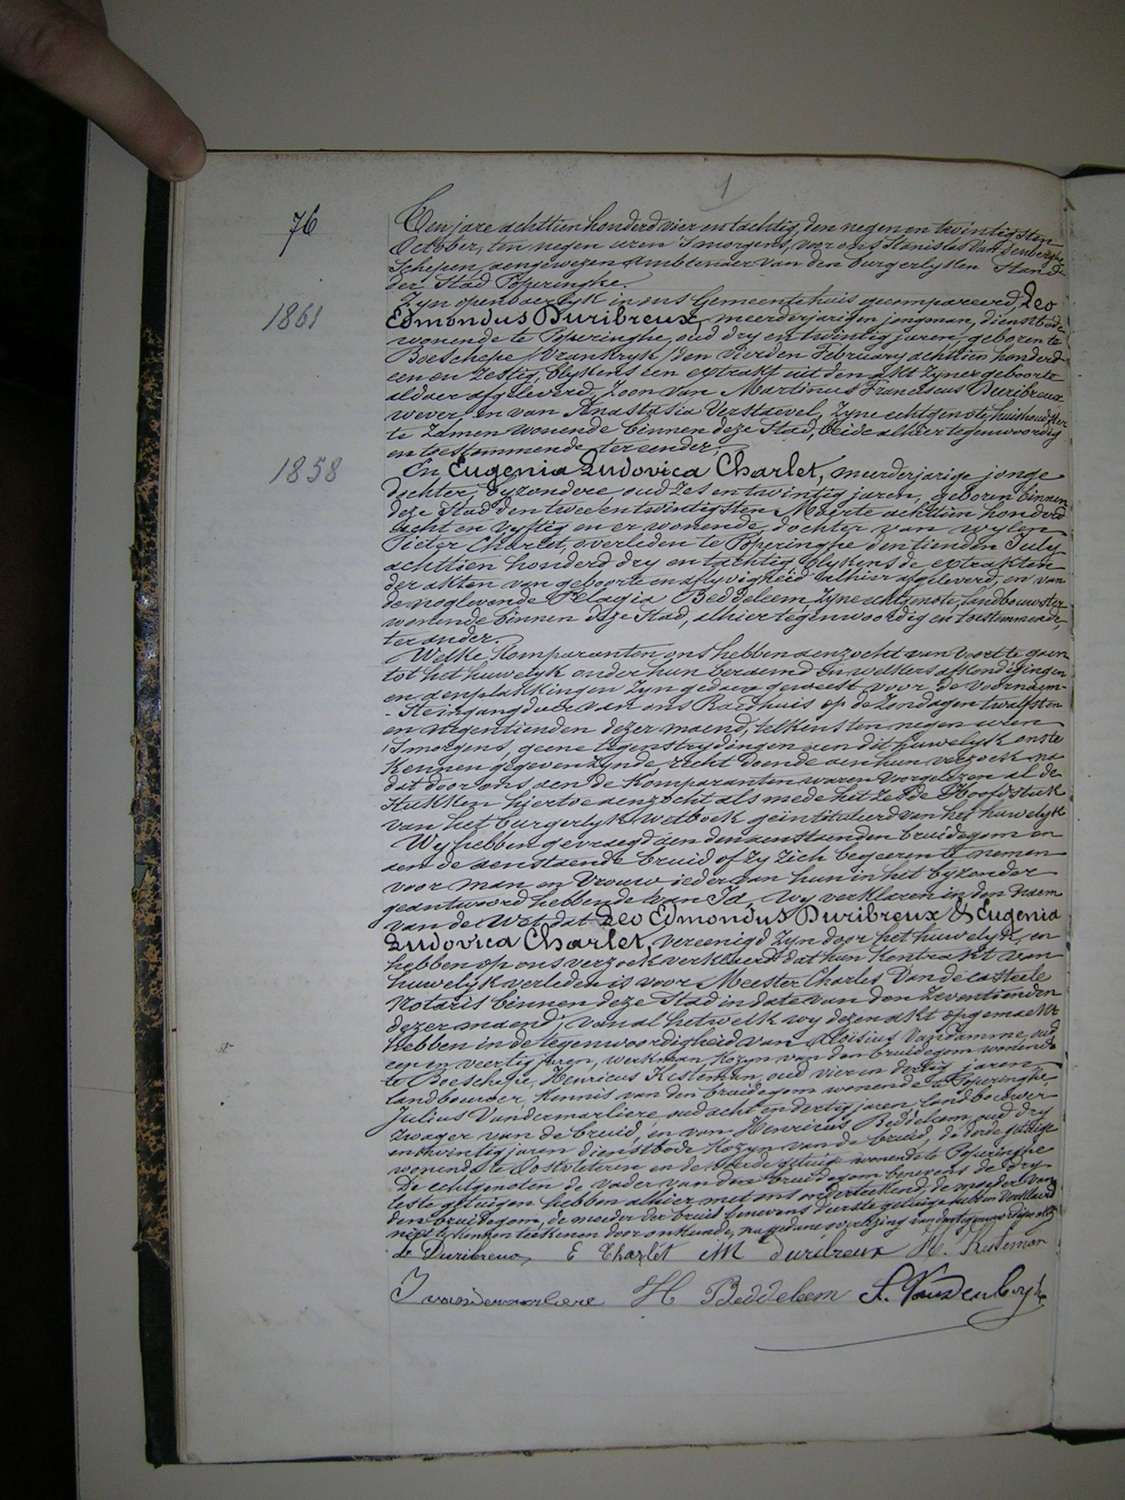 1
76
Ten jare achttien honderd vier en tachtig, den negen en twintigsten
October, ten negen uren 's morgens, voor ons Stanislas Vandenberghe
Schepen, aengewezen Ambtenaer van den burgerlyken Stand
der Stad Poperinghe.
Zyn openbaerlyk in ons Gemeentehuis gecompareerd, Leo
1861
Edmondus Duribreux, meerderjarigen jongman, dienstbode
wonende te Poperinghe, oud dry en twintig jaren, geboren te
Boeschepe /Vrankryk/ den vierden February achttien honderd
een en zestig, blykens een extrakt uit den akt zyner geboorte
aldaer afgeleverd, zoon van Martinus Franciscus Duribreux
wever, en van Anastasia Verstaevel, zyne echtgenote, huishoudster
te zamen wonende binnen deze Stad, beide alhier tegenwoordig
en toestemmende, ter eender,
1858
En Eugenia Ludovica Charlet, meerderjarige jonge
dochter, byzondere, oud zes en twintig jaren, geboren binnen
deze Stad den twee en twintigsten Maerte achttien honderd
acht en vyftig en er wonende, dochter van wylen
Pieter Charlet, overleden te Poperinghe den tienden July
achttien honderd dry en tachtig, blykens de extrakten
der akten van geboorte en aflyvigheid alhier afgeleverd, en van
de noglevende Pelagia Beddeleem, zyne echtgenote, landbouwster
wonende binnen deze Stad, alhier tegenwoordig en toestemmende,
ter ander.
Welke Komparanten ons hebben aenzocht van voort te gaen
tot het huwelyk onder hun beraemd en welkers afkondigingen
en aenplakkingen zyn gedaen geweest voor de voornaem-
-ste ingangdeur van ons Raedhuis op de Zondagen twaelfsten
en negentienden dezer maend, telkens ten negen uren
's morgens, geene tegenstrydingen aen dit huwelyk ons te
kennen gegeven zynde recht doende aen hun verzoek na
dat door ons, aen de Komparanten waren voorgelezen al de
Stukken hiertoe aenzocht als mede het zesde Hoofdstuk
van het burgerlyk Wetboek geïntituleerd van het huwelyk
Wy hebben gevraegd aen den aenstaenden bruidegom en
aen de aenstaende bruid of zy zich begeeren te nemen
voor man en vrouw ieder van hun in het byzonder
geantwoord hebbende van Ja. Wy verklaren in den naem
van de Wet dat Leo Edmondus Duribreux & Eugenia
Ludovica Charlet, vereenigd zyn door het huwelyk, en
hebben op ons verzoek verklaerd dat hun Kontrakt van
huwelyk verleden is voor Meester Charles Van de casteele
Notaris binnen deze Stad in date van den zeventienden
dezer maend. Van al hetwelk wy dezen akt opgemaekt
hebben in de tegenwoordigheid van Aloïsius Vandamme, oud
een en veertig jaren, werkman, kozyn van den bruidegom wonende
te Boeschepe, Henricus Kesteman, oud vier en dertig jaren
landbouwer, kennis van den bruidegom wonende te Poperinghe,
Julius Vandermarliere, oud acht en dertig jaren, landbouwer
zwager van de bruid, en van Henricus Beddeleem, oud dry
en twintig jaren dienstbode Kozyn van de bruid, de derde getuige
wonende te Oostvleteren en de vierde getuige wonende te Poperinghe
De echtgenoten de vader van den bruidegom benevens de dry
leste getuigen hebben alhier met ons onderteekend, de moeder van
den bruidegom, de moeder der bruid benevens d'eerste getuige hebben verklaerd
niet te konnen teekenen door onkunde, na gedane voorlezing
L. Duribreux E Charlet M Duribreux H. Kesteman
J vandermarliere H Beddeleem S. Vandenberghe